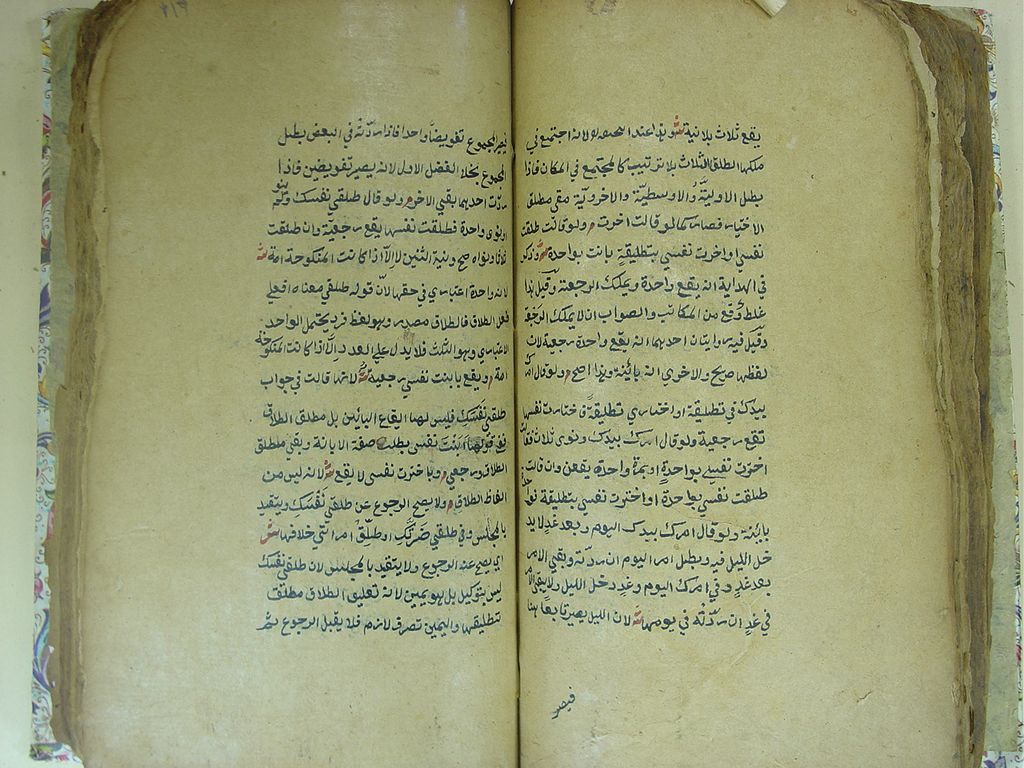 يقع ثلاث بلا نية ش وهذا عند ابي حنيفة لانه اجتمع في
ملكها الطلق الثلاث بلا ترتيب كالمجتمع في المكان فاذا
بطل الاولية والاوسطية والاخروية بقي مطلق
الاختيار فصار كما لو قالت اخترت م ولو قالت طلقت
نفسي او اخترت نفسي بتطليقة بانت بواحدة ش وذكر
في الهداية انه يقع واحدة ويملك الرجعة وقيل هذا
غلط وقع من الكاتب والصواب ان لا يملك الرجعة
وقيل فيه روايتان احديهما انه يقع واحدة رجعية لان
لفظها صريح والاخرى انه بائنة وهذا اصح م ولو قال امرك
بيدك في تطليقة او اختاري تطليقة فاختارت نفسها
تقع رجعية ولو قال امرك بيدك ونوى ثلاث فقالت
اخترت نفسي بواحدة او بمرة واحدة يقعن وان قالت
طلقت نفسي بواحدة او اخترت نفسي بتطليقة فواحدة
بائنة ولو قال امرك بيدك اليوم وبعد غد لا يد
خل الليل فيه ويبطل امر اليوم ان ردته وبقي الامر
بعد غد وفي امرك اليوم وغد دخل الليل ولا يبقى الامر
في غد ان ردته في يومها ش لان الليل يصير تابعا هنا
فيصير
فيصير المجموع تفويضا واحدا فاذا ردته في البعض بطل
المجموع بخلاف الفصل الاول لانه يصير تفويضين فاذا
ردت احديهما بقي الاخر م ولو قال طلقي نفسك ولم ينو
او نوى واحدة فطلقت نفسها يقع رجعية وان طلقت
ثلاثا ونواه صح ونية الثنتين لا الا اذا كانت المنكوحة امة ش
لانه واحدة اعتباري في حقها لان قوله طلقي معناه افعلي
فعل الطلاق فالطلاق مصدر وهو لفظ فرد يحتمل الواحد
الاعتباري وهو الثلث فلا يدل على العدد الا اذا كانت المنكوحة
امة م ويقع بابنت نفسي رجعية ش لانها قالت في جواب
طلقي نفسك فليس لها ايقاع البائن بل مطلق الطلاق
ففي قولها ابنت نفسي بطلت صفة الابانة وبقي مطلق
الطلاق ورجعي م وباخترت نفسي لا يقع ش لانه ليس من
الفاظ الطلاق م ولا يصح الرجوع عن طلقي نفسك ويتقيد
بالمجلس وفي طلقي ضرتك او طلق امرأتي خلافها ش
اي يصح عنه الرجوع ولا يتقيد بالمجلس لان طلقي نفسك
ليس بتوكيل بل هو يمين لانه تعليق الطلاق مطلقا
بتطليقها واليمين تصرف لازم فلا يقبل الرجوع ثم